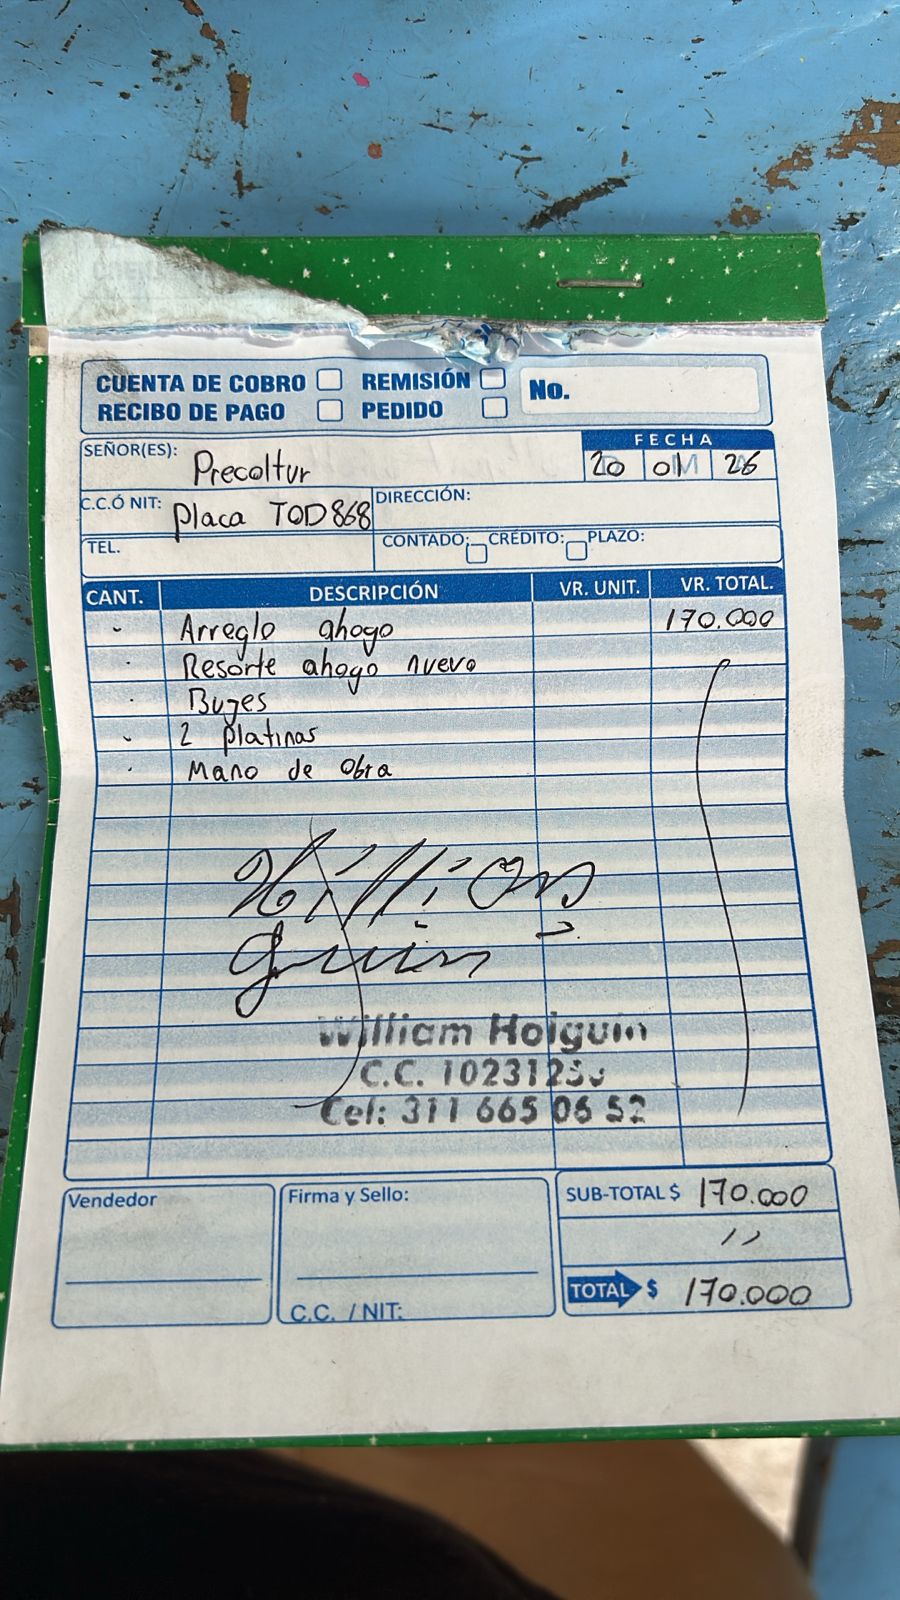 CUENTA DE COBRO REMISIÓN No.
RECIBO DE PAGO PEDIDO
SEÑOR(ES): Precoltur
FECHA
20 01 26
C.C.Ó NIT: Placa TOD868 DIRECCIÓN:
TEL. CONTADO: CRÉDITO: PLAZO:
CANT. DESCRIPCIÓN VR. UNIT. VR. TOTAL.
- Arreglo ahogo 170.000
- Resorte ahogo nuevo
- Bujes
- 2 platinas
- Mano de obra
William Holguin
C.C. 1023125
Cel: 311 665 06 52
Vendedor Firma y Sello: SUB-TOTAL $ 170.000
C.C. / NIT: TOTAL $ 170.000